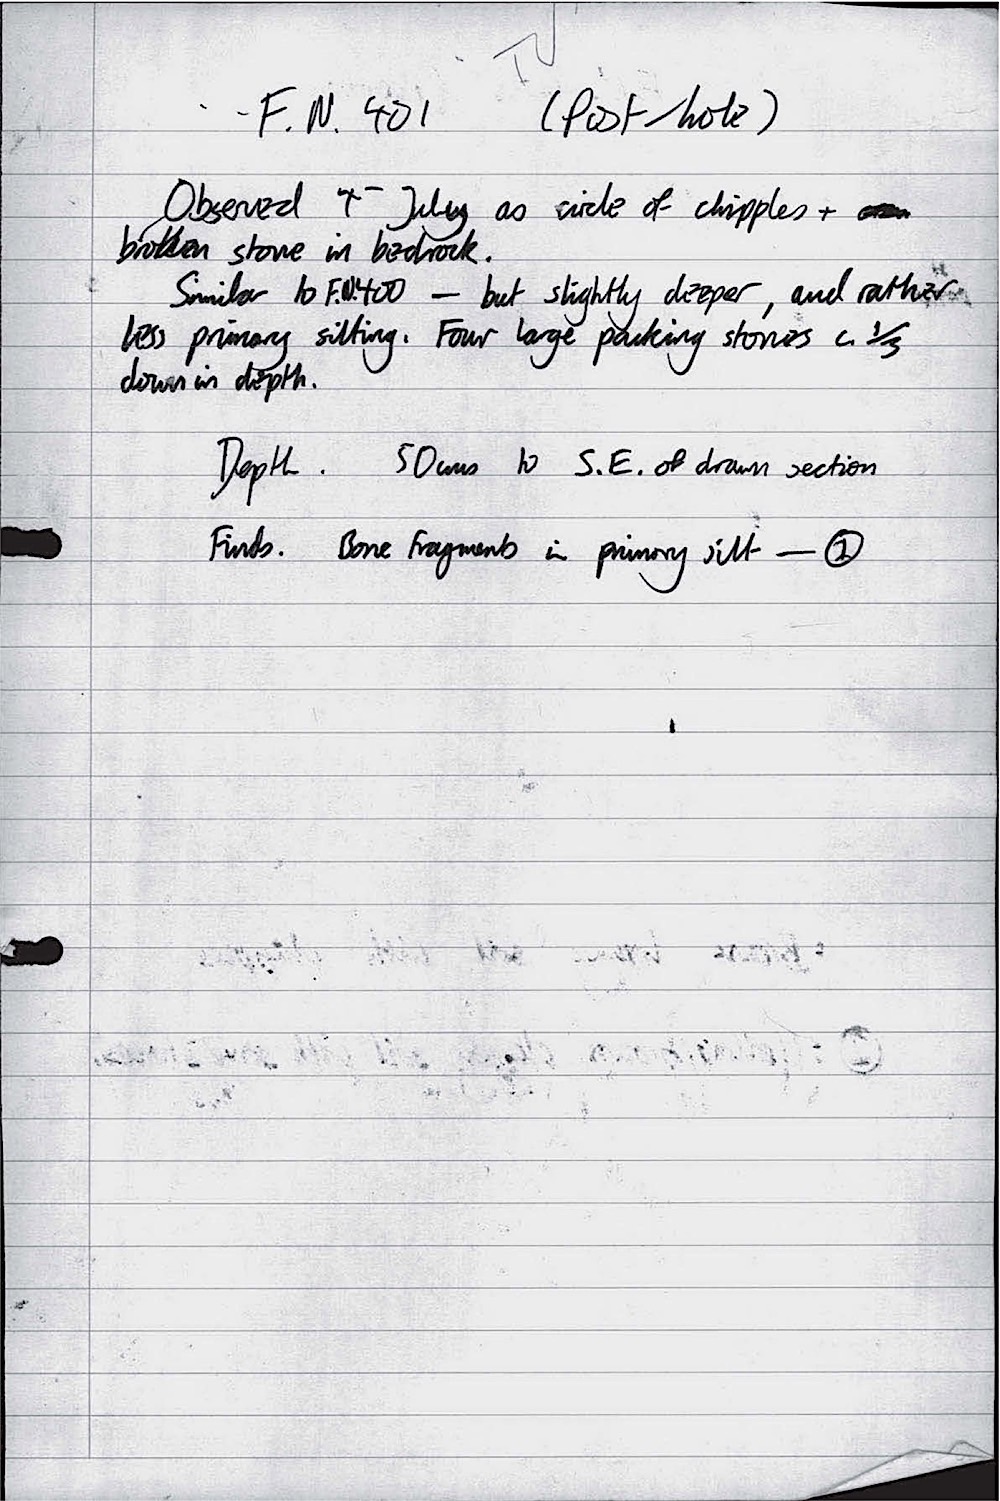 IV
F.N. 401 (Post/hole)
Observed 4th July as circle of chipples +
broken stone in bedrock.
Similar to F.N.400 — but slightly deeper, and rather
less primary silting. Four large packing stones c. 1/3
down in depth.
Depth. 50cms to S.E. of drawn section
Finds. Bone fragments in primary silt — ①